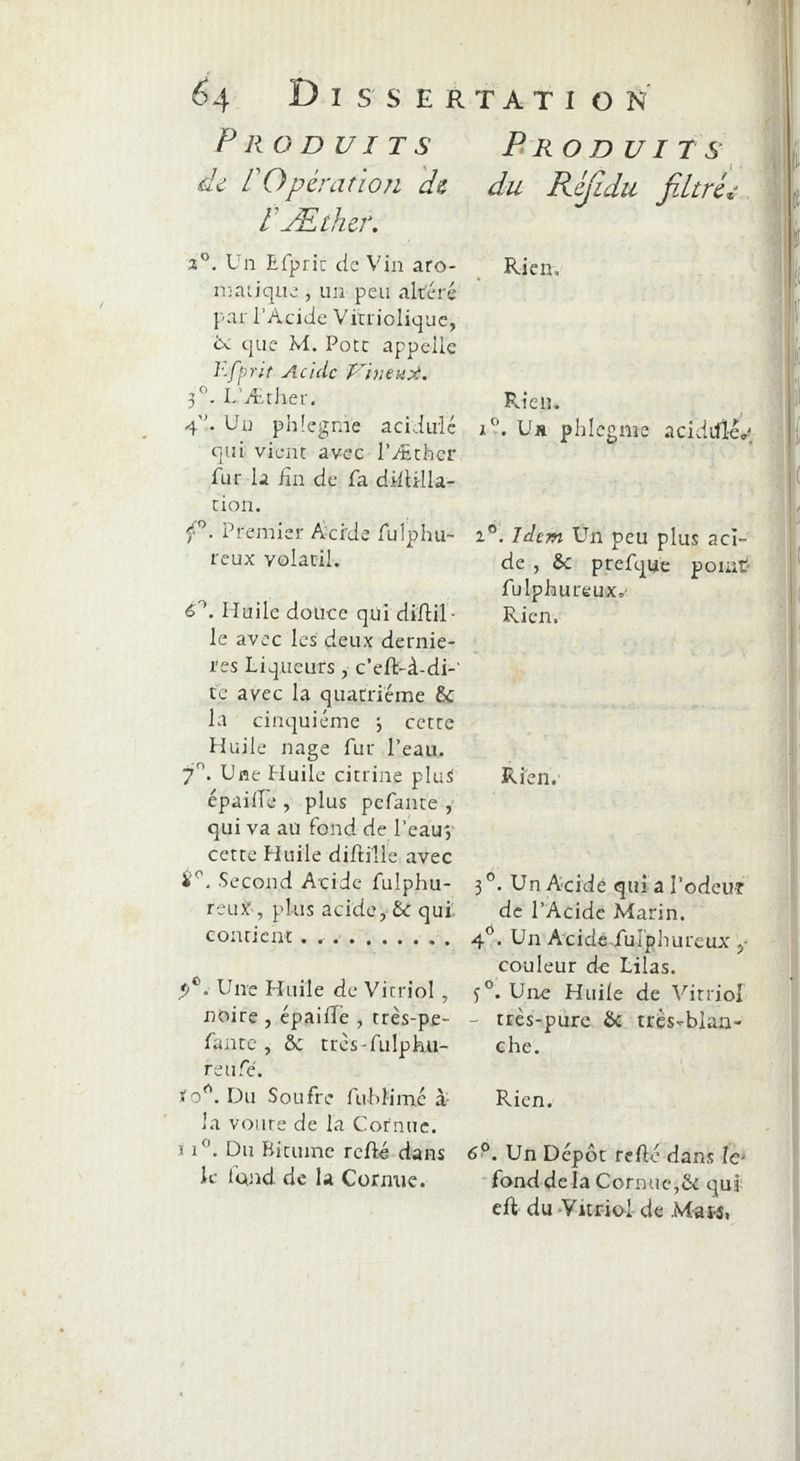 64 DISSERTATION
PRODUITS
de l'Opération de
l'Æther.
2°. Un Esprit de Vin aro-
matique, un peu altéré
par l'Acide Vitriolique,
& que M. Pott appelle
Esprit Acide Vineux.
3°. L'Æther.
4°. Un phlegme acidulé
qui vient avec l'Æther
sur la fin de sa distilla-
tion.
5°. Premier Acide sulphu-
reux volatil.
6°. Huile douce qui distil-
le avec les deux dernie-
res Liqueurs, c'est-à-di-
re avec la quatriéme &
la cinquiéme ; cette
Huile nage sur l'eau.
7°. Une Huile citrine plus
épaisse, plus pesante,
qui va au fond de l'eau;
cette Huile distille avec
8°. Second Acide sulphu-
reux, plus acide, & qui
contient . . . . . . . . . .
9°. Une Huile de Vitriol,
noire, épaisse, très-pe-
sante, & très-sulphu-
reuse.
10°. Du Soufre sublimé à
la voute de la Cornue.
11°. Du Bitume resté dans
le fond de la Cornue.
PRODUITS
du Résidu filtré.
Rien.
Rien.
1°. Un phlegme acidulé.
2°. Idem Un peu plus aci-
de, & presque point
sulphureux.
Rien.
Rien.
3°. Un Acide qui a l'odeur
de l'Acide Marin.
4°. Un Acide sulphureux,
couleur de Lilas.
5°. Une Huile de Vitriol
très-pure & très-blan-
che.
Rien.
6°. Un Dépôt resté dans le
fond de la Cornue, & qui
est du Vitriol de Mars,